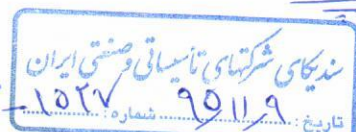 سندیکای شرکتهای تأسیساتی و صنعتی ایران
تاریخ: ۹۵/۱۱/۹ شماره: ۱۵۲۷-